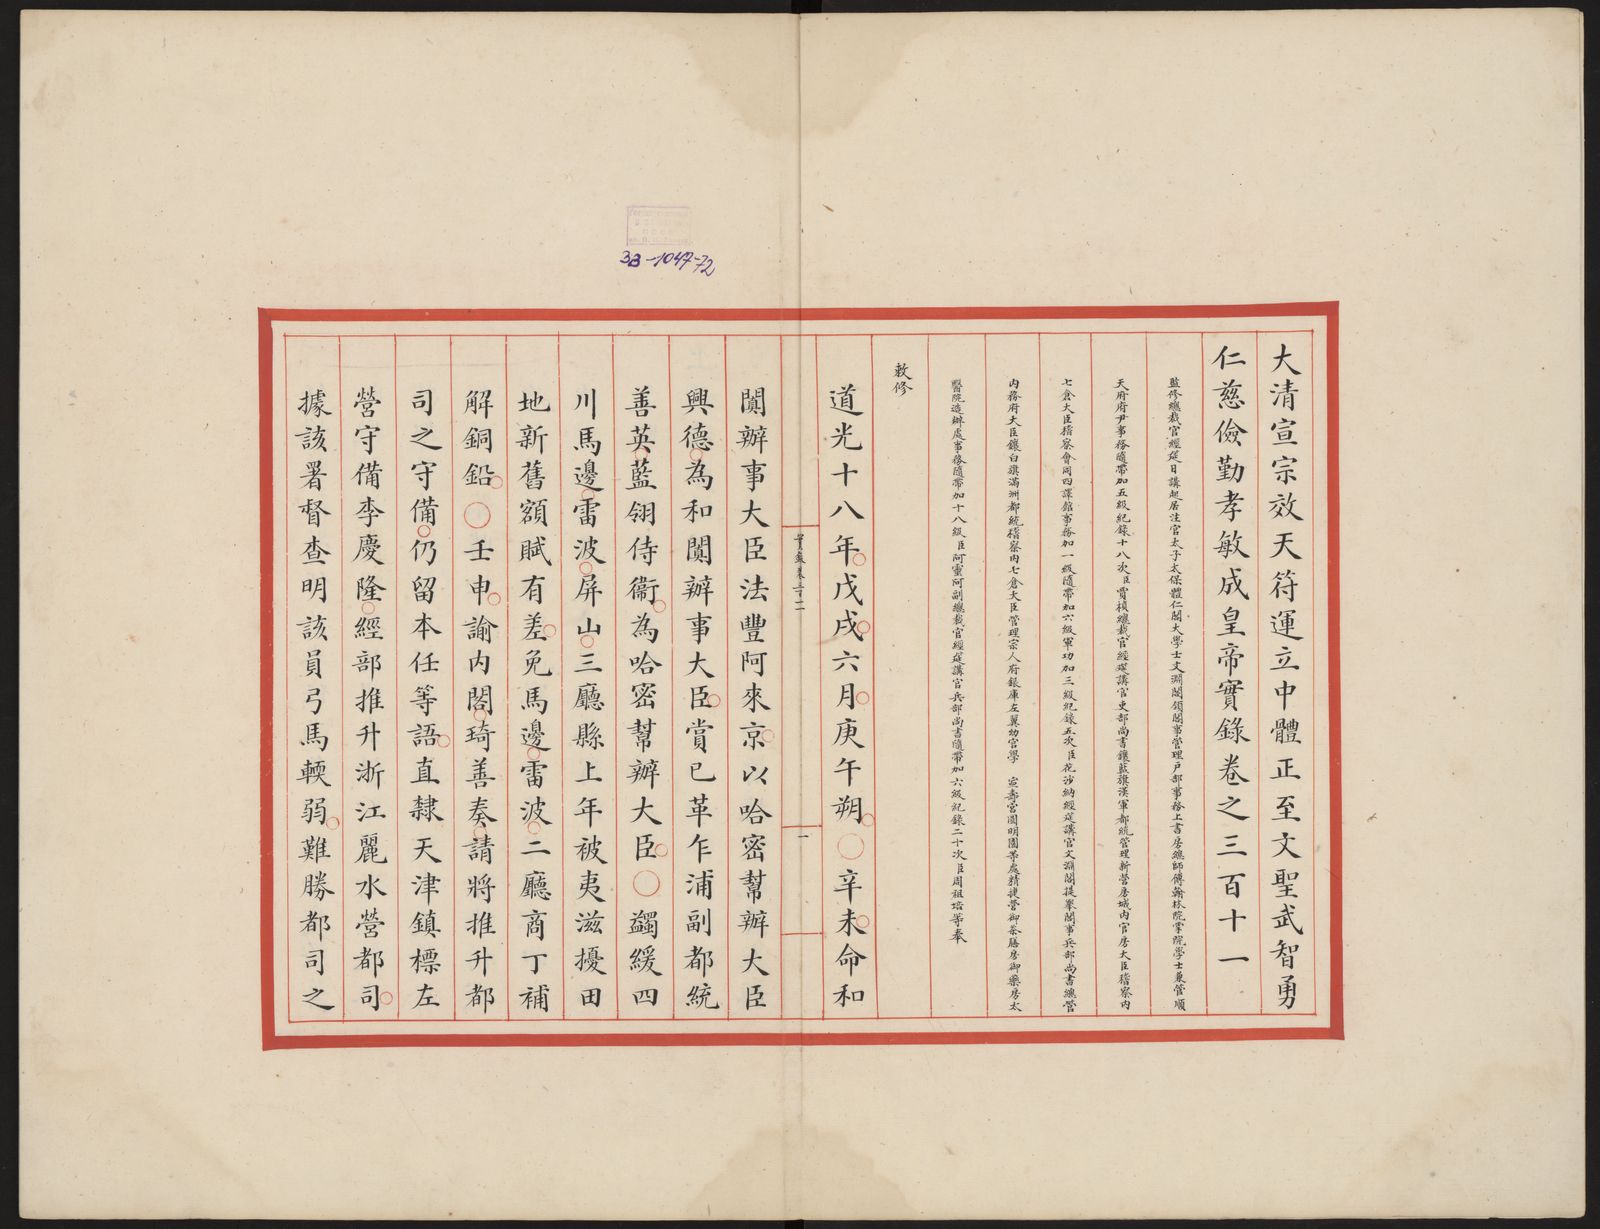 33-1047-72
大清宣宗效天符運立中體正至文聖武智勇
仁慈儉勤孝敏成皇帝實錄卷之三百十一
監修總裁官經筵日講起居注官太子太保體仁閣大學士文淵閣領閣事管理戶部事務上書房總師傅翰林院掌院學士兼管順
天府府尹事務隨帶加五級紀錄十八次臣賈楨總裁官經筵講官吏部尚書鑲藍旗漢軍都統管理新營房城內官房大臣稽察內
七倉大臣稽察會同四譯館事務加一級隨帶加六級軍功加三級紀錄五次臣花沙納經筵講官文淵閣提舉閣事兵部尚書總管
內務府大臣鑲白旗滿洲都統稽察內七倉大臣管理宗人府銀庫左翼幼官學 壽宮圓明園等處精捷營御茶膳房御藥房太
醫院造辦處事務隨帶加十八級臣阿靈阿副總裁官經筵講官兵部尚書隨帶加六級紀錄二十次臣周祖培等奉
敕修
道光十八年戊戌六月庚午朔○辛未命和
實錄卷三百十一
一
闐辦事大臣法豐阿來京以哈密幫辦大臣
興德為和闐辦事大臣賞已革乍浦副都統
善英藍翎侍衞為哈密幫辦大臣○蠲緩四
川馬邊雷波屏山三廳縣上年被夷滋擾田
地新舊額賦有差免馬邊雷波二廳商丁補
解銅鉛○壬申諭內閣琦善奏請將推升都
司之守備仍留本任等語直隸天津鎮標左
營守備李慶隆經部推升浙江麗水營都司
據該署督查明該員弓馬輭弱難勝都司之